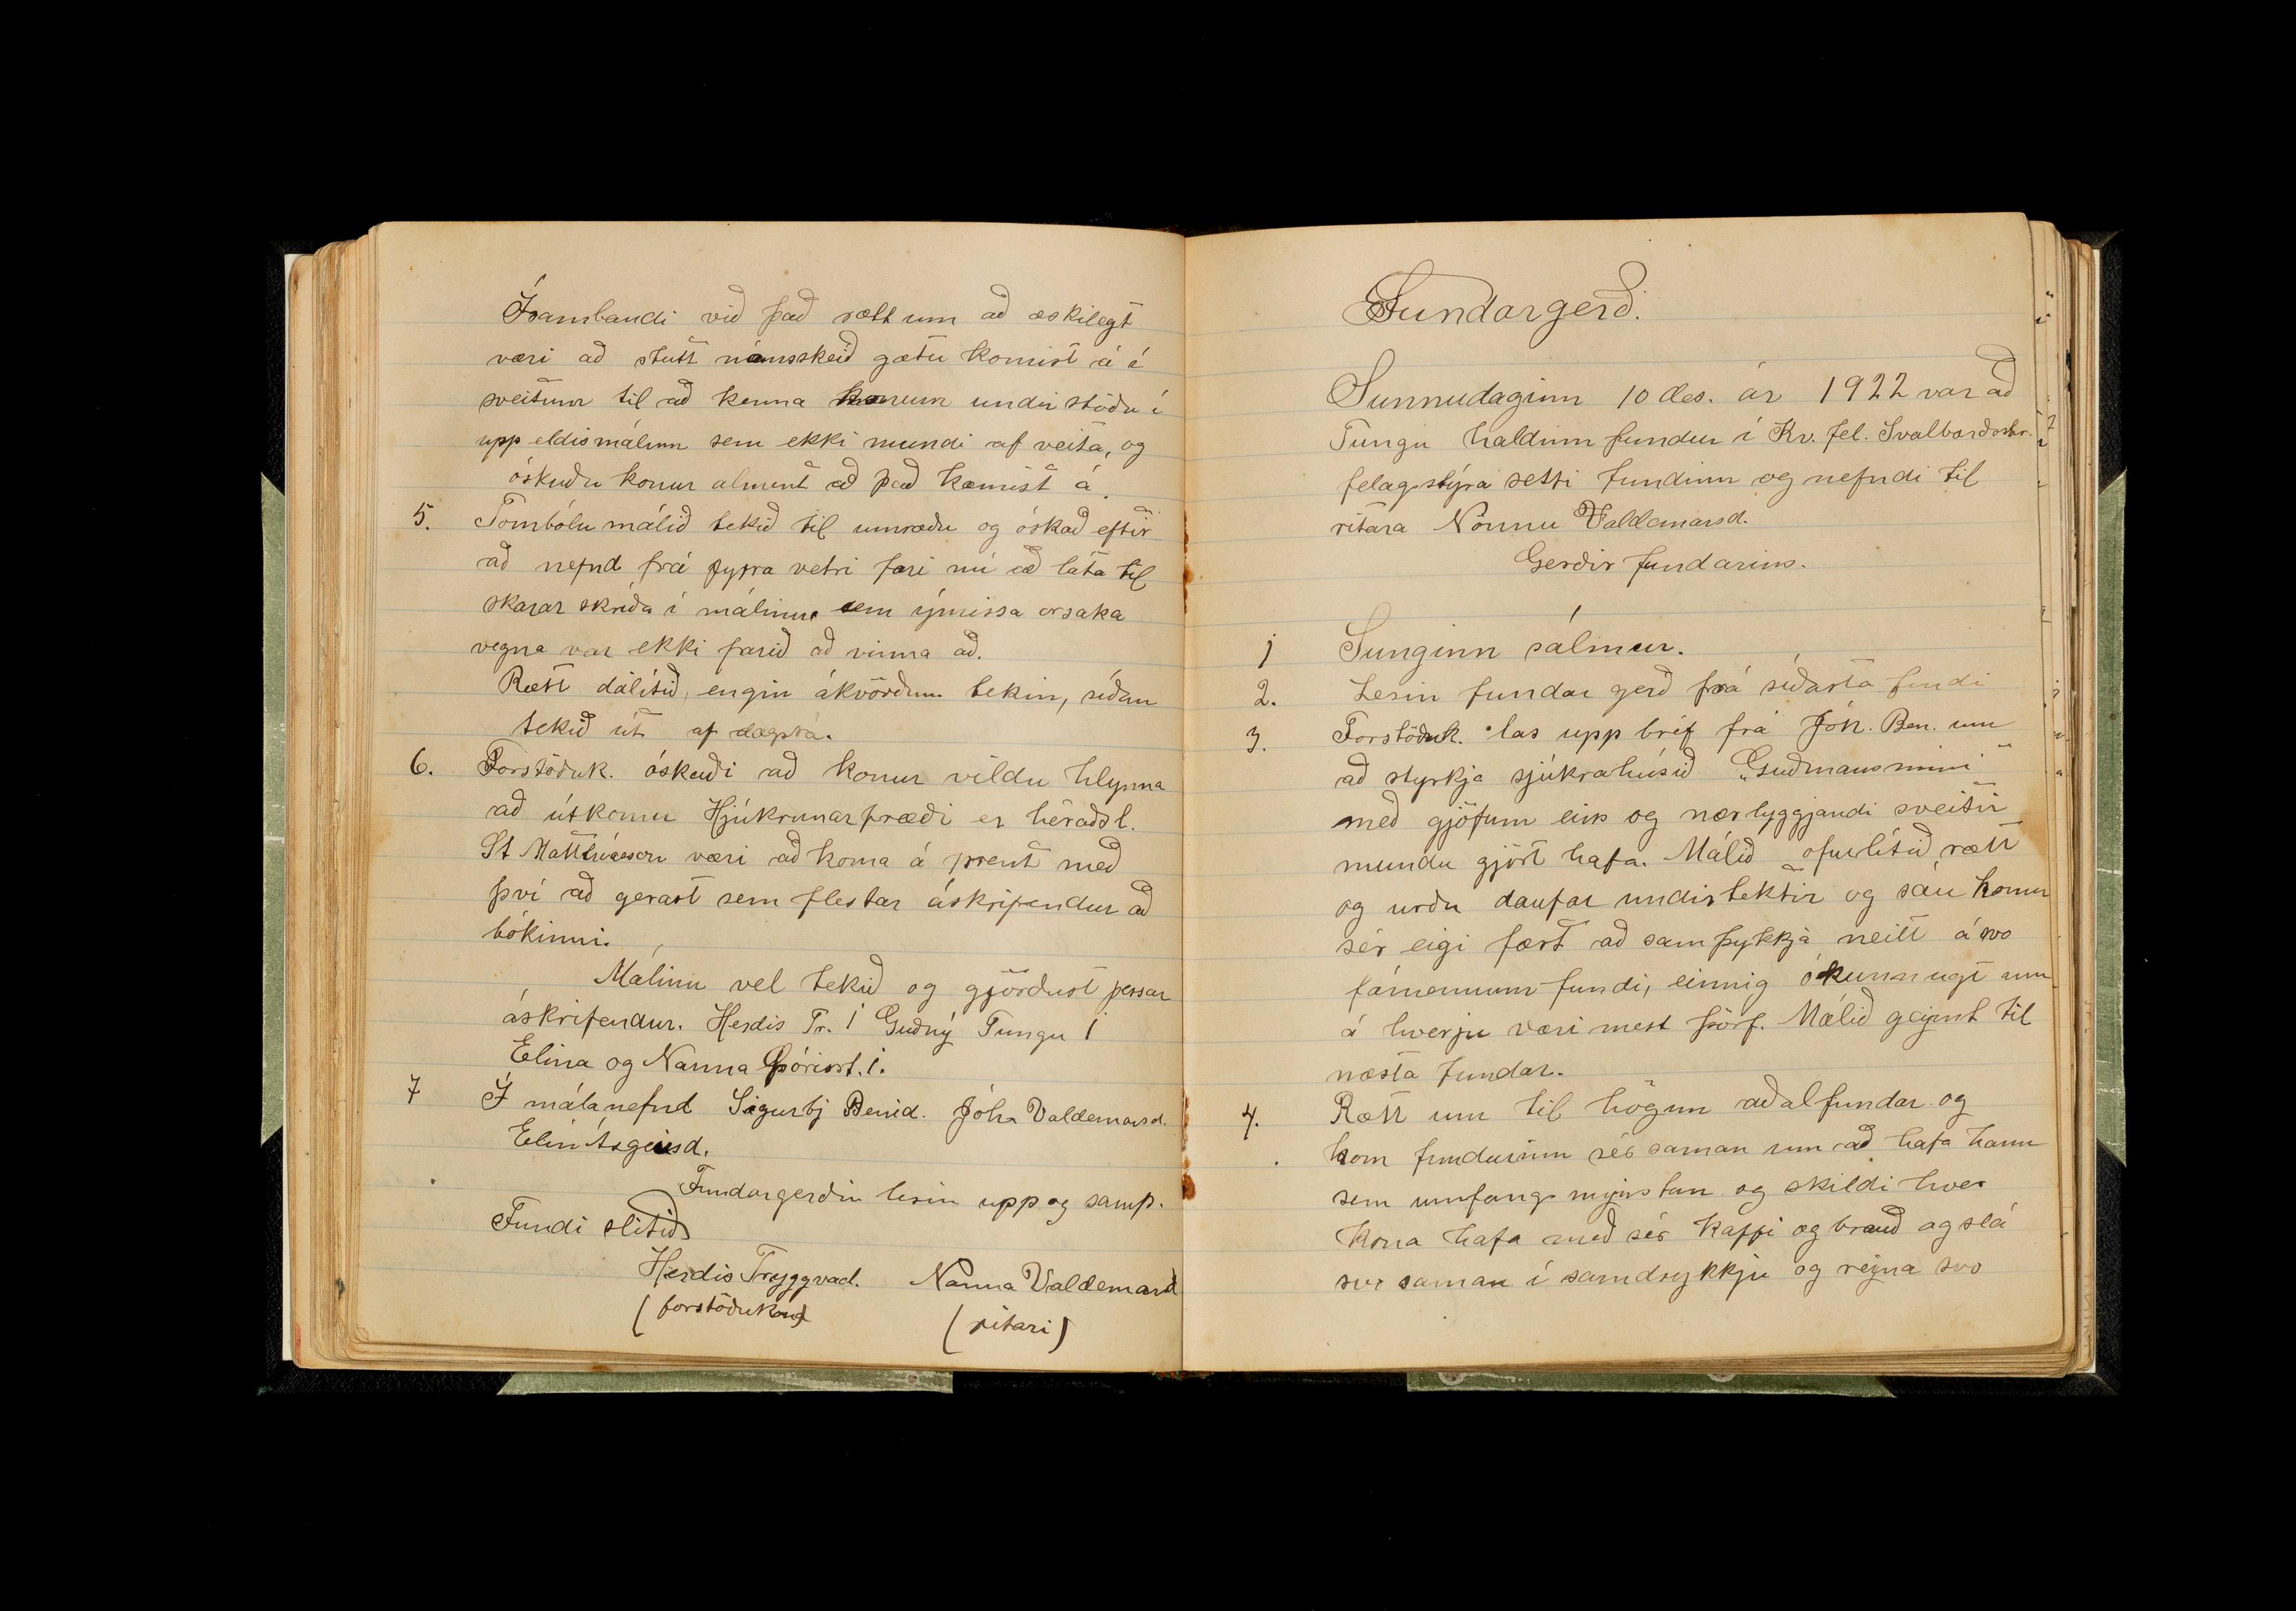 Ísambandi við það rætt um að æskilegt
væri að stutt námsskeið gætu komist á í
sveitum til að kenna konum undirstöðu í
uppeldismálum sem ekki mundi af veita, og
óskuðu konur alment að það kæmist á.
5. Tombólumálið tekið til umræðu og óskað eftir
að nefnd frá fyrra vetri fari nú að láta til
skarar skríða í málinu, sem ýmissa orsaka
vegna var ekki farið að vinna að.
Rætt dálítið, engin ákvörðun tekin, síðan
tekið út af dagskrá.
6. Forstöðuk. óskaði að konur vildu hlynna
að útkomu Hjúkrunarfræði er héraðsl.
St Matthíasson væri að koma á prent með
því að gerast sem flestar áskrifendur að
bókinni.
Málinu vel tekið og gjörðust þessar
áskrifendur. Herdís Tr. 1 Guðný Tungu 1
Elina og Nanna Þórisst. 1.
7 Í málanefnd Sigurbj Benid. Jóh. Valdemarsd.
Elín Ásgeirsd.
Fundargerðin lesin upp og samþ.
Fundi slitið
Herdís Tryggvad. Nanna Valdemarsd
(forstöðukona) (ritari)
Fundargerð.
Sunnudaginn 10 des. ár 1922 var að
Tungu haldinn fundur í Kv. fel. Svalbarðsstr.
felagstýra setti fundinn og nefndi til
ritara Nönnu Valdemarsd.
Gerðir fundarins.
1 Sunginn sálmur.
2. Lesin fundar gerð frá síðasta fundi
3. Forstöðuk. las upp bréf frá Jóh. Ben. um
að styrkja sjúkrahúsið "Guðmansminni"
með gjöfum eins og nærlyggjandi sveitir
mundu gjört hafa. Málið ofurlítið rætt
og urðu daufar undirtektir og sáu konur
sér eigi fært að samþykkja neitt á svo
fámennum fundi, einnig ókunnugt um
á hverju væri mest þörf. Málið geymt til
næsta fundar.
4. Rætt um til högun aðalfundar og
kom fundurinn sér saman um að hafa hann
sem umfangsmynstan og skildi hver
kona hafa með sér kaffi og brauð og slá
svo saman í samdrykkju og reyna svo